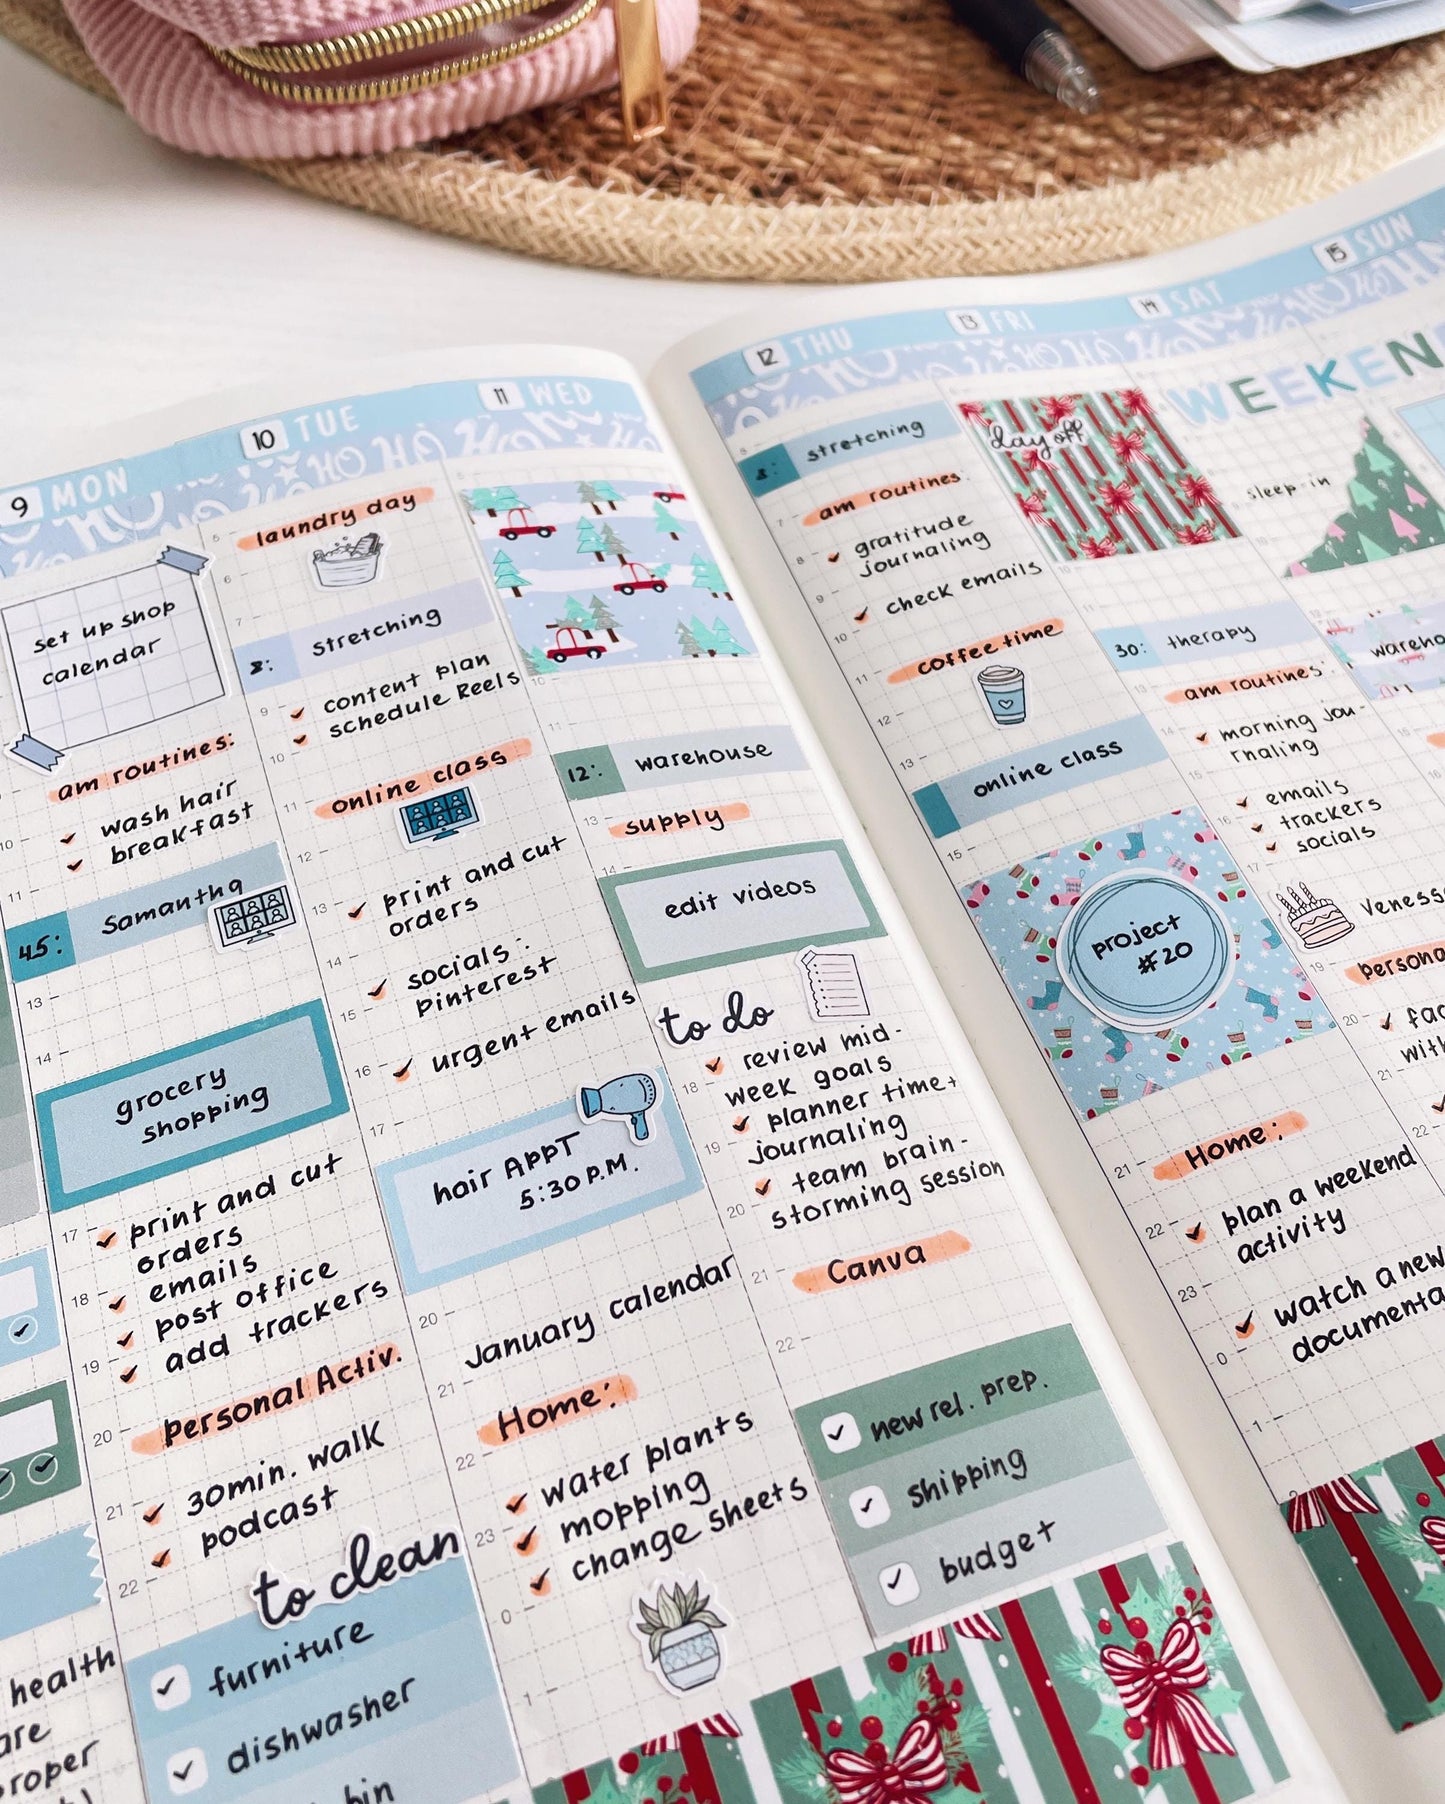 9 MON
set up shop
calendar
am routines:
wash hair
breakfast
45: Samantha
grocery
shopping
print and cut
orders
emails
post office
add trackers
Personal Activ.
30min. walk
podcast
to clean
furniture
dishwasher
bin
health
10 TUE
laundry day
8: stretching
content plan
schedule Reels
online class
print and cut
orders
socials:
pinterest
urgent emails
hair APPT
5:30 P.M.
January calendar
Home:
water plants
mopping
change sheets
11 WED
12: warehouse
supply
edit videos
to do
review mid-
week goals
planner time+
journaling
team brain-
storming session
Canva
new rel. prep.
shipping
budget
12 THU
8: stretching
am routines:
gratitude
journaling
check emails
coffee time
online class
project
#20
Home:
plan a weekend
activity
watch a new
13 FRI
day off
30: therapy
am routines:
morning jou-
rnaling
emails
trackers
socials
14 SAT
15 SUN
sleep-in
HO HO